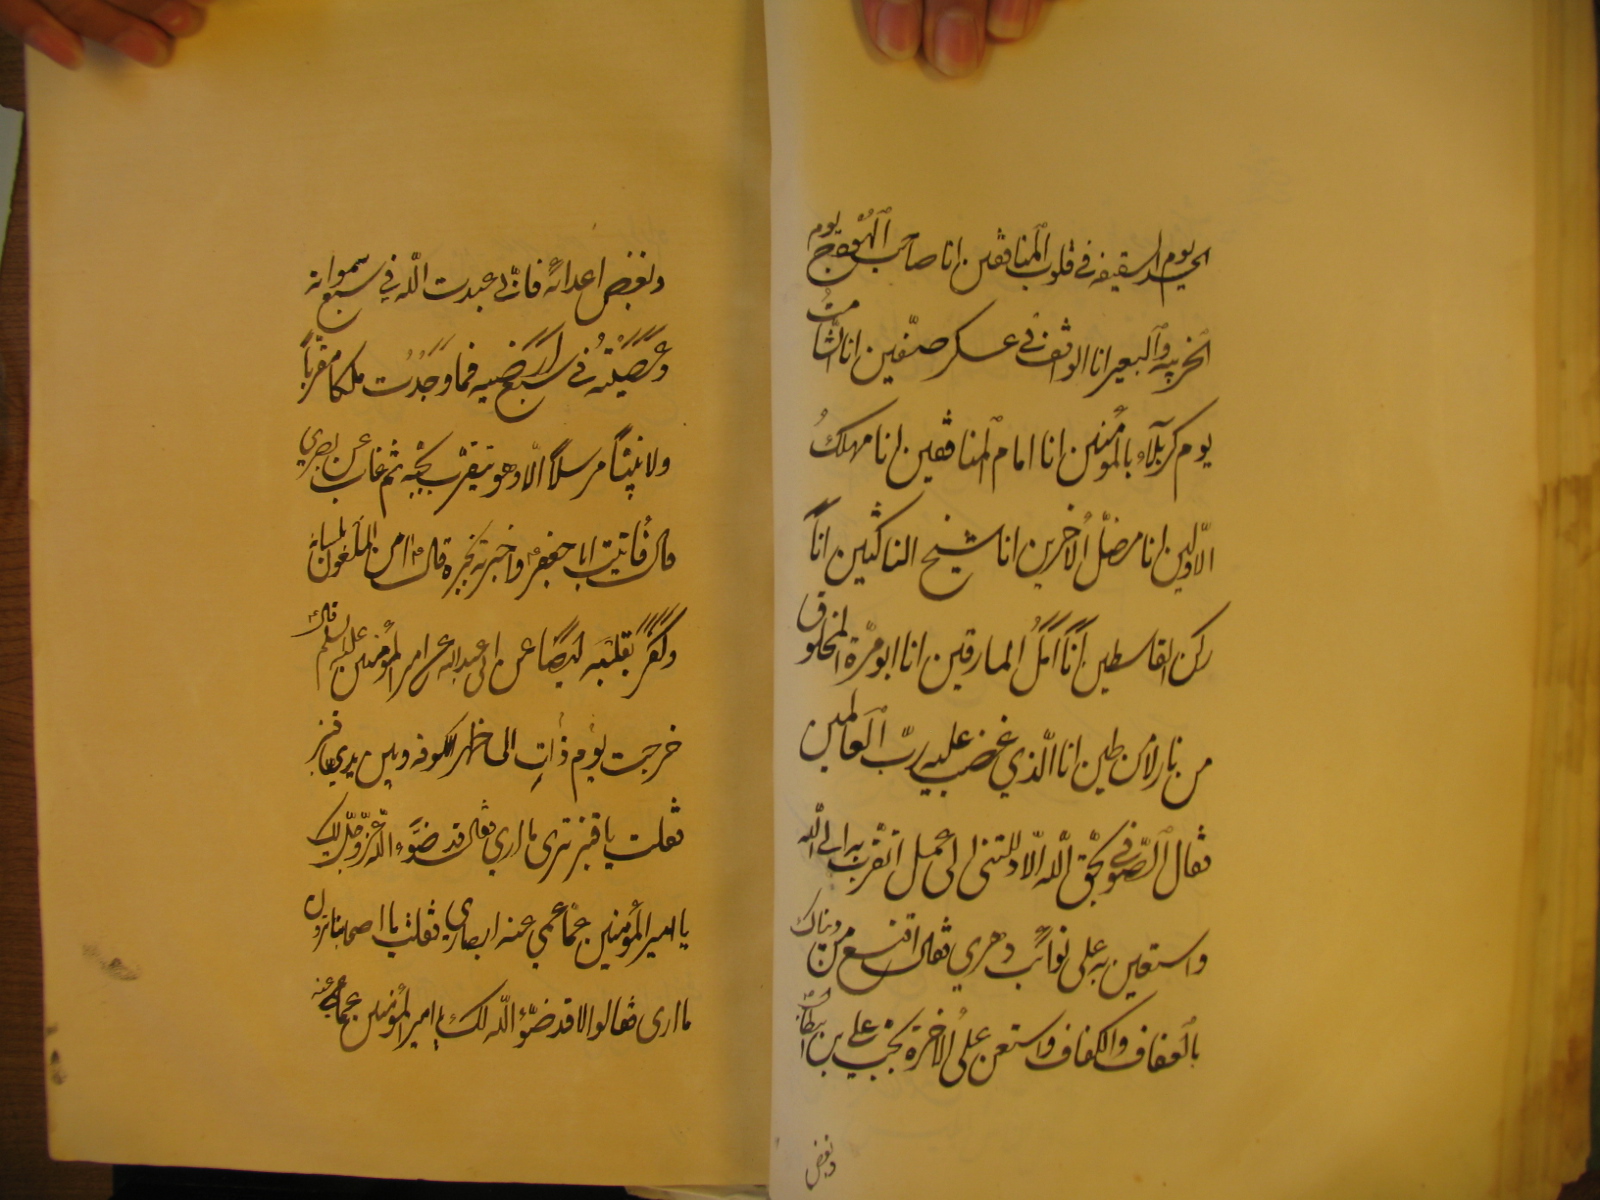 يوم السقيفه في قلوب المنافقين انا صاحب الهودج يوم
الخريبه والبعير انا الواقف في عسكر صفين انا الشامت
يوم كربلاء بالمؤمنين انا امام المنافقين انا مهلك
الاولين انا مضل الاخرين انا شيخ الناكثين انا
ركن القاسطين انا امل المارقين انا ابو مرة المخلوق
من نار لا من طين انا الذي غضب عليه رب العالمين
فقال الصوفي بحق الله الا دللتني الى عمل اتقرب به الى الله
واستعين به على نوائب دهري فقال اقنع من دنياك
بالعفاف والكفاف واستعن على الاخرة بحب علي بن ابيطالب
وبغض
وبغض اعدائه فاني عبدت الله في سبع سمواته
وعصيته في سبع ارضيه فما وجدت ملكا مقربا
ولا نبيا مرسلا الا وهو يتقرب بحبه ثم غاب عن بصري
قال فاتيت ابا جعفر واخبرته بخبره قال امن الملعون بلسانه
وكفر بقلبه ايضا عن ابي عبدالله عن امير المؤمنين عليه السلم قال
خرجت يوم ذات الى ظهر الكوفه وبين يدي قنبر
فقلت يا قنبر ترى ما ارى فقال قد ضوء الله عز وجل لك
يا امير المؤمنين عما عمي عنه ابصاري فقلت يا اصحابنا ترون
ما ارى فقالوا لا قد ضوء الله لك يا امير المؤمنين عما عمي عنه